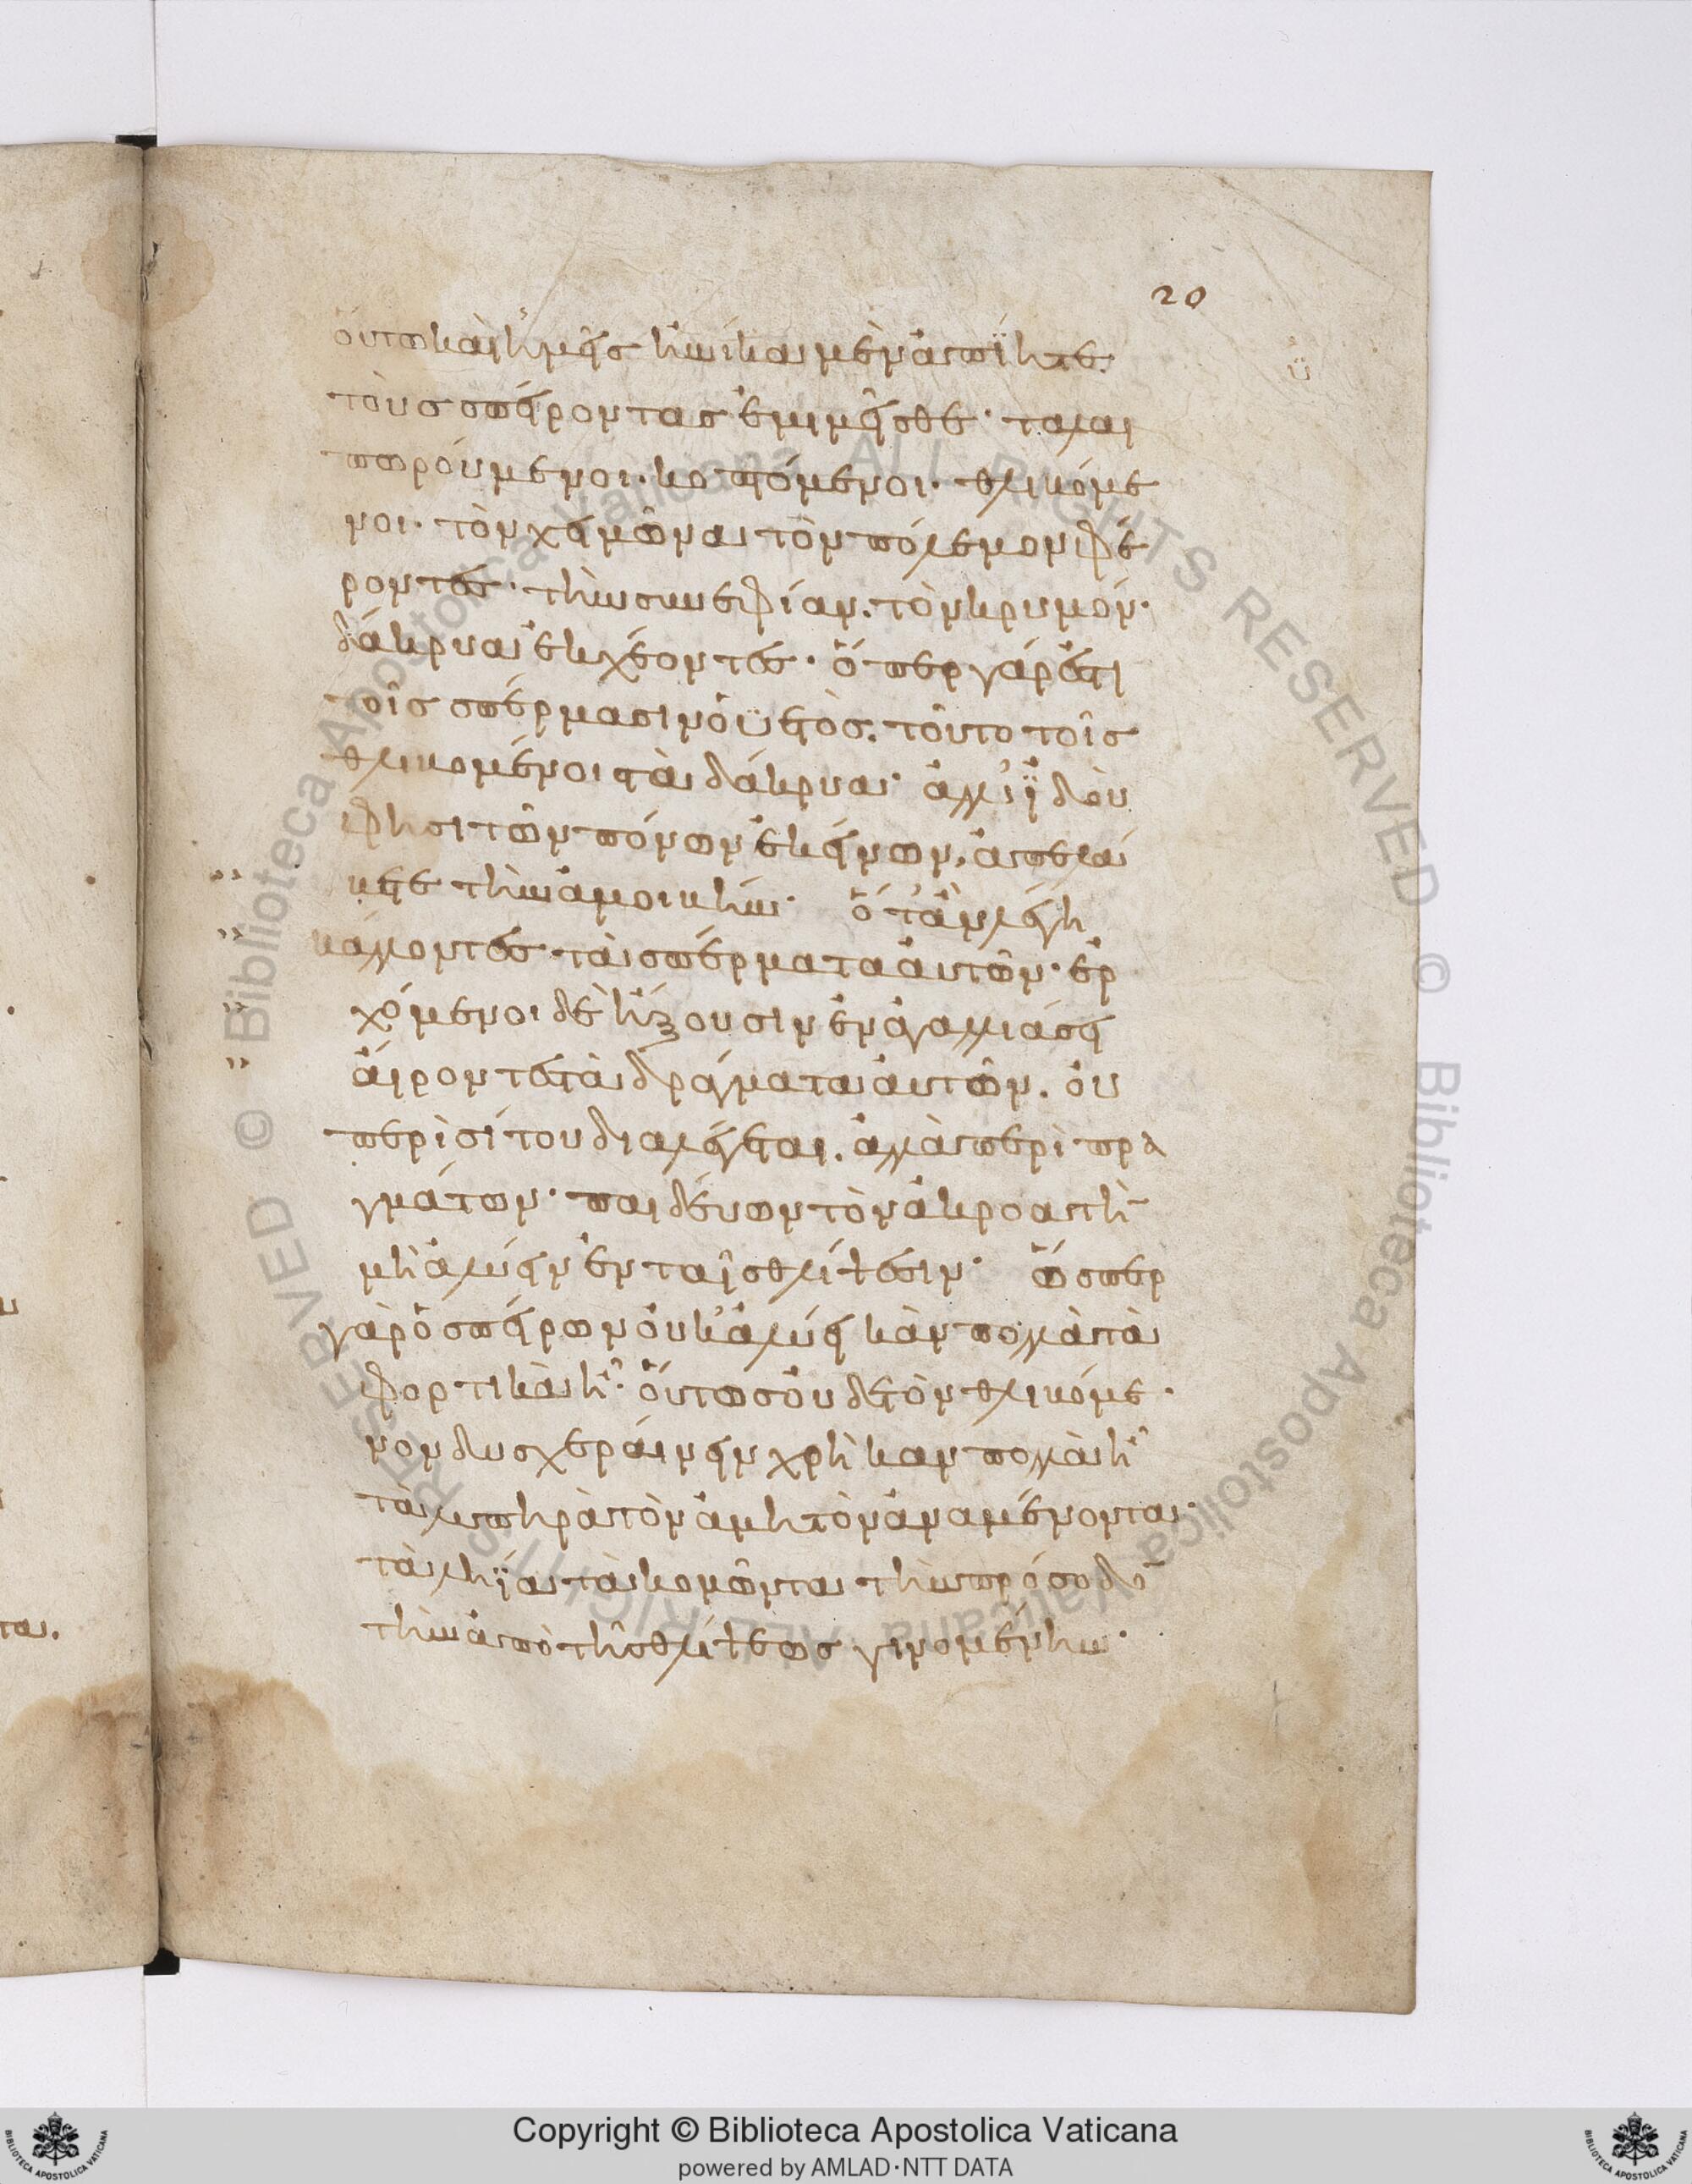 20
οὕτω καὶ ἡμεῖς ἡνίκα μὲν ἀπῄητε
τοὺς σπείροντας ἐμιμεῖσθε· ταλαι
πωρούμενοι· κοπτόμενοι· θλιβόμε
νοι· τὸν χειμῶνα τὸν πόλεμον φέ
ροντες· τὴν συνεφίαν. τὸν κρυμόν·
δάκρυα ἐκχέοντες· ὅπερ γάρ ἐστι
τοῖς σπέρμασιν ὁ ϋετὸς. τοῦτο τοῖς
θλιβομένοις τὰ δάκρυα· ἀλλ' ϊδοὺ
φησι τῶν πόνων ἐκείνων, ἀπελά
βετε τὴν ἀμοιβήν· ὅτ' ἂν λέγη
βάλλοντες τὰ σπέρματα αὐτῶν· ἐρ
χόμενοι δὲ ἥξουσιν ἐν ἀγαλλιάσει
αἴροντες τὰ δράγματα αὐτῶν. οὐ
περὶ σίτου διαλέγεται. ἀλλὰ περὶ πρα
γμάτων· παιδεύων τὸν ἀκροατὴ
μὴ ἀλύειν ἐν ταῖς θλίψεσιν· ὥσπερ
γὰρ ὁ σπείρων οὐκ ἀλύει κἂν πολλὰ τὰ
φορτικὰ ἦ· οὕτως οὐδὲ τὸν θλιβόμε
νον δυσχεραίνειν χρὴ καν πολλὰ ἦ
τὰ λυπηρὰ τὸν ἀμητὸν ἀναμένοντα·
τὰ λήϊα τὰ κομῶντα τὴν πρόσοδο
τὴν ἀπὸ τῆς θλίψεως γινομένην·
Copyright © Biblioteca Apostolica Vaticana
powered by AMLAD·NTT DATA